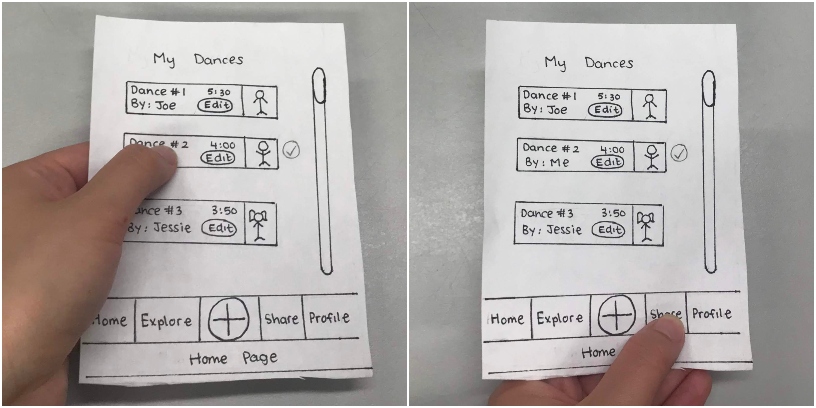 My Dances
Dance #1 5:30
By: Joe Edit
Dance #2 4:00
Edit
Dance #3 3:50
By: Jessie Edit
Home Explore Share Profile
Home Page
My Dances
Dance #1 5:30
By: Joe Edit
Dance #2 4:00
By: Me Edit
Dance #3 3:50
By: Jessie Edit
Home Explore Share Profile
Home